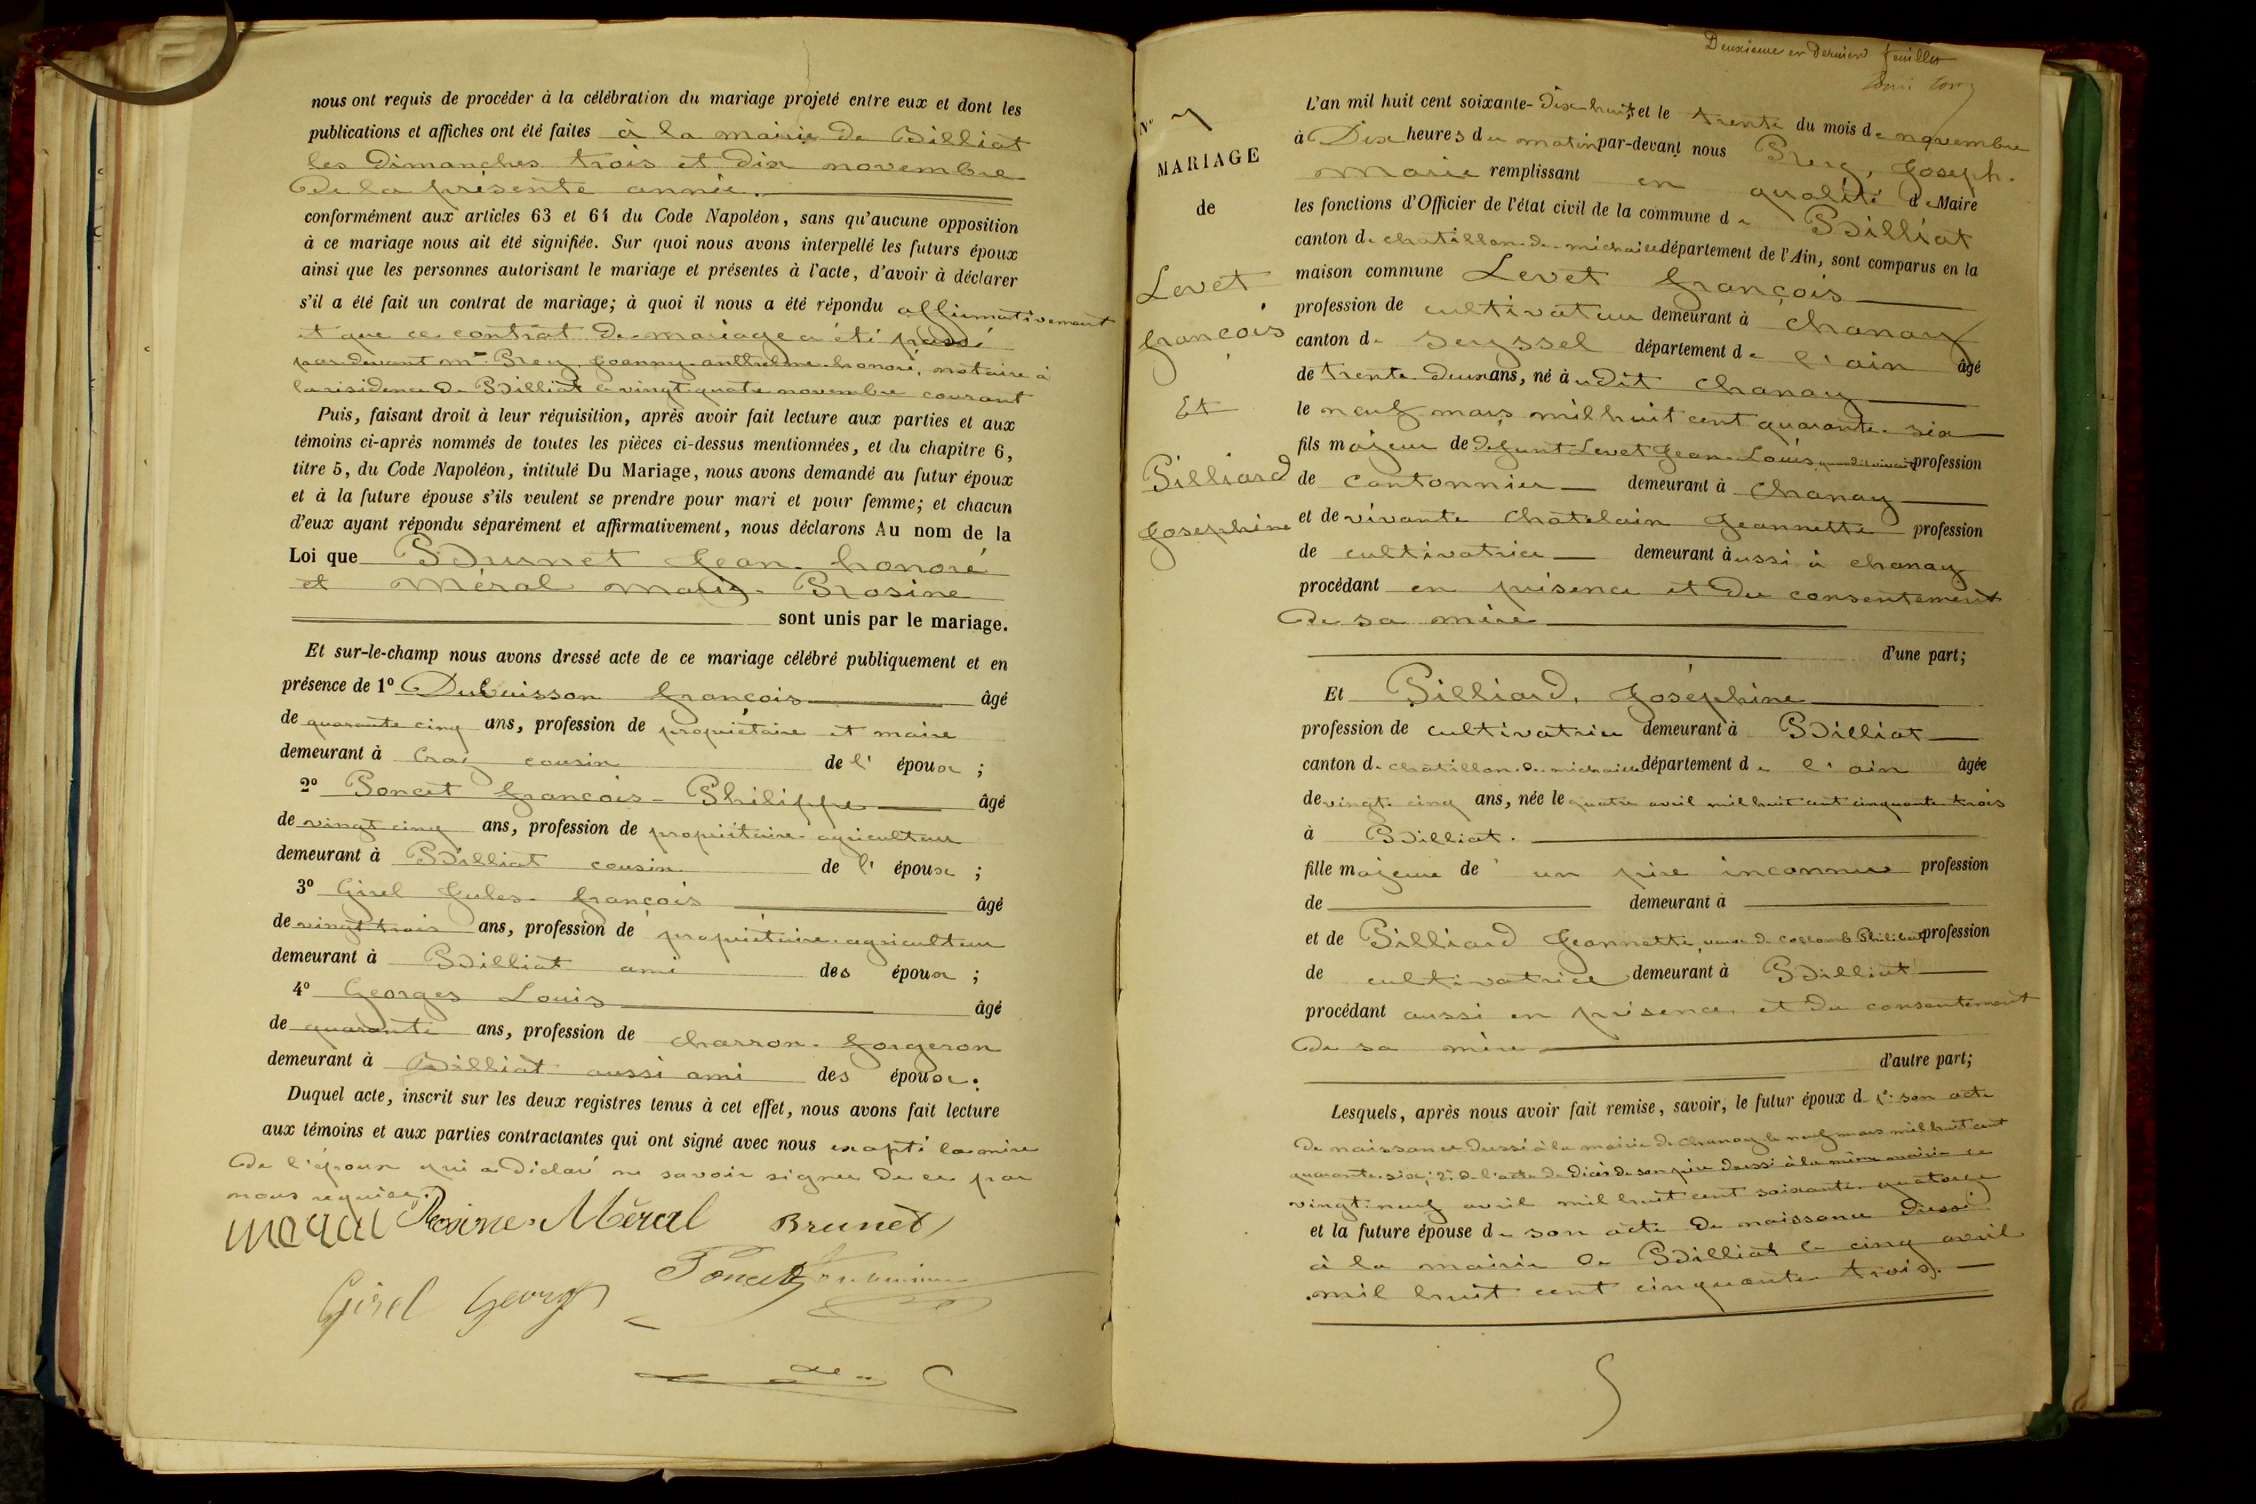 nous ont requis de procéder à la célébration du mariage projeté entre eux et dont les
publications et affiches ont été faites à la mairie de Billiat
les dimanches trois et dix novembre
de la présente année.
conformément aux articles 63 et 64 du Code Napoléon, sans qu'aucune opposition
à ce mariage nous ait été signifiée. Sur quoi nous avons interpellé les futurs époux
ainsi que les personnes autorisant le mariage et présentes à l'acte, d'avoir à déclarer
s'il a été fait un contrat de mariage; à quoi il nous a été répondu affirmativement
et que ce contrat de mariage a été passé
par devant Me Brey, Joanny anthelme honoré, notaire à
la résidence de Billiat le vingt quatre novembre courant
Puis, faisant droit à leur réquisition, après avoir fait lecture aux parties et aux
témoins ci-après nommés de toutes les pièces ci-dessus mentionnées, et du chapitre 6,
titre 5, du Code Napoléon, intitulé Du Mariage, nous avons demandé au futur époux
et à la future épouse s'ils veulent se prendre pour mari et pour femme; et chacun
d'eux ayant répondu séparément et affirmativement, nous déclarons Au nom de la
Loi que Brunet Jean-honoré
et Méral Rosine
sont unis par le mariage.
Et sur-le-champ nous avons dressé acte de ce mariage célébré publiquement et en
présence de 1º Dubuisson françois âgé
de quarante cinq ans, profession de propriétaire et maire
demeurant à Craz cousin de l' époux ;
2º Poncet françois-Philippe âgé
de vingt cinq ans, profession de propriétaire-agriculteur
demeurant à Billiat cousin de l' épouse ;
3º Girel Jules-françois âgé
de vingt trois ans, profession de propriétaire-agriculteur
demeurant à Billiat ami des époux ;
4º Georges Louis âgé
de quarante ans, profession de charron-forgeron
demeurant à Billiat aussi ami des époux.
Duquel acte, inscrit sur les deux registres tenus à cet effet, nous avons fait lecture
aux témoins et aux parties contractantes qui ont signé avec nous excepté la mère
de l'époux qui a déclaré ne savoir signer de ce par
nous requise.
Rosine Méral Brunet
Poncet
Girel Georges
Deuxième et dernier feuillet
Nº 7
MARIAGE
de
Levet
françois
Et
Pilliard
Josephine
L'an mil huit cent soixante-dix huit, et le trente du mois de novembre
à Dix heures du matin par-devant nous Brey, Joseph-
Marie remplissant en qualité de Maire
les fonctions d'Officier de l'état civil de la commune de Billiat
canton de chatillon-de-michaille département de l'Ain, sont comparus en la
maison commune Levet françois
profession de cultivateur demeurant à chanay
canton de Seyssel département de l'ain âgé
de trente-deux ans, né à udit chanay
le neuf mars mil huit cent quarante-six
fils majeur de défunt Levet Jean-Louis, quand vivait profession
de cantonnier demeurant à chanay
et de vivante chatelain Jeannette profession
de cultivatrice demeurant à ussi à chanay
procédant en présence et du consentement
de sa mère
d'une part;
Et Pilliard, Joséphine
profession de cultivatrice demeurant à Billiat
canton de chatillon-de-michaille département de l'ain âgée
de vingt-cinq ans, née le quatre avril mil huit cent cinquante trois
à Billiat.
fille majeure de un père inconnu profession
de demeurant à
et de Pilliard Jeannette, veuve de Collomb Philibert profession
de cultivatrice demeurant à Billiat
procédant aussi en présence et du consentement
de sa mère
d'autre part;
Lesquels, après nous avoir fait remise, savoir, le futur époux de 1º son acte
de naissance dressé à la mairie de chanay le neuf mars mil huit cent
quarante-six; 2º de l'acte de décès de son père dressé à la même mairie le
vingt-neuf avril mil huit cent soixante-quatorze
et la future épouse de son acte de naissance dressé
à la mairie de Billiat le cinq avril
mil huit cent cinquante-trois.